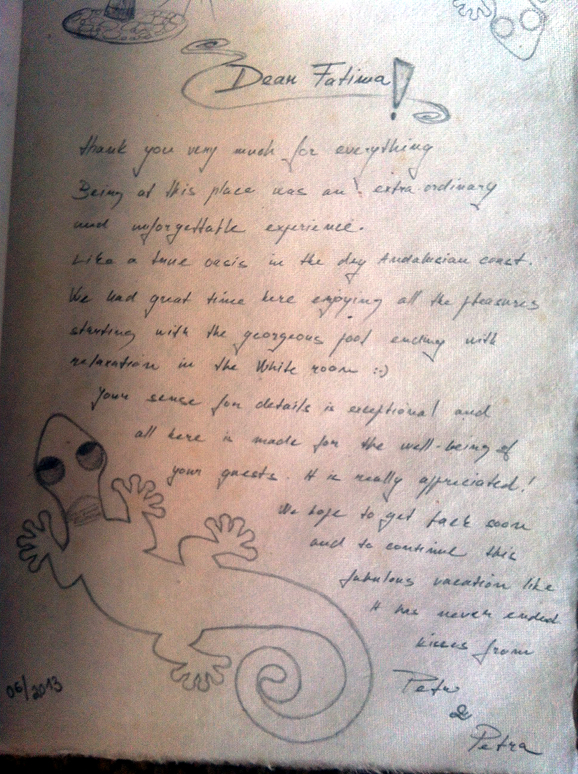 Dear Fatima!
thank you very much for everything
Being at this place was an! extra-ordinary
and unforgettable experience.
Like a true oasis in the dry Andalusian coast.
We had great time here enjoying all the pleasures
starting with the georgeous pool ending with
relaxation in the White room :-)
Your sense for details is exceptional and
all here is made for the well-being of
your guests. It is really appriciated!
We hope to get back soon
and to continue this
fabulous vacation like
it has never ended
kisses from
Petr
&
Petra
06/2013